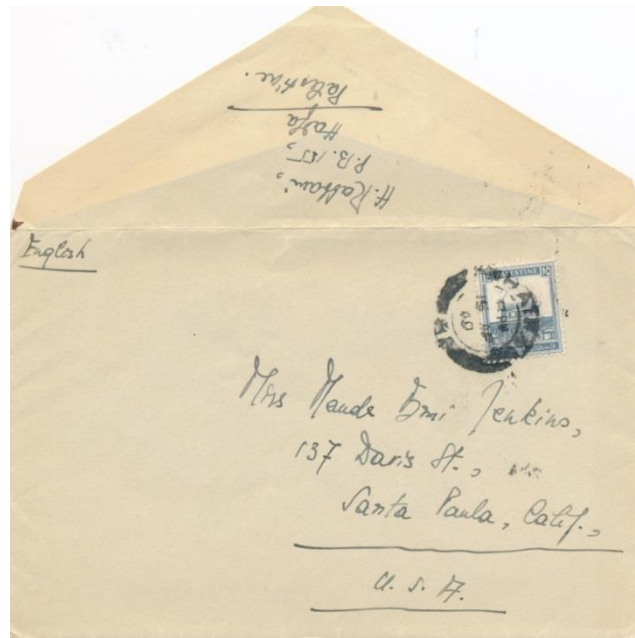 H. Rabbani,
P.B. 155,
Haifa
Palestine.
English
PALESTINE 10
HAIFA
15
40
Miss Maude Emi Jenkins,
137 Davis St.,
Santa Paula, Calif.,
U.S.A.